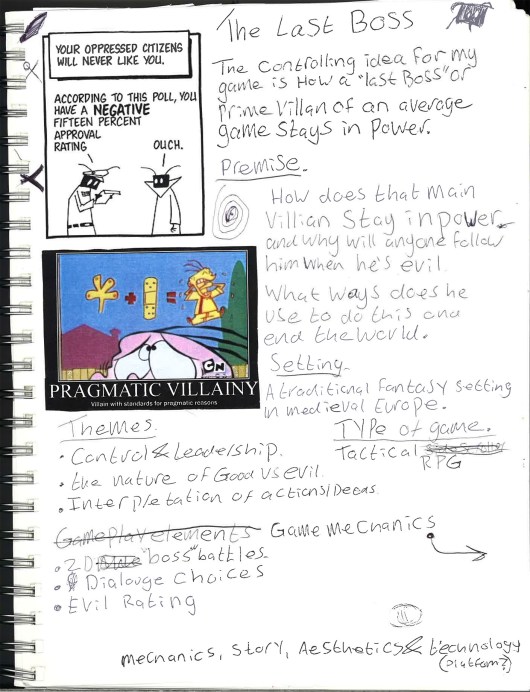 The Last Boss
YOUR OPPRESSED CITIZENS
WILL NEVER LIKE YOU.
ACCORDING TO THIS POLL, YOU
HAVE A NEGATIVE
FIFTEEN PERCENT
APPROVAL
RATING
OUCH.
The controlling idea for my
game is How a "last Boss" or
Prime Villan of an average
game Stays in Power.
Premise.
How does that main
Villian Stay in power
and why will anyone follow
him when he's evil.
What ways does he
use to do this and
end the world.
CN
PRAGMATIC VILLAINY
Villain with standards for pragmatic reasons
Setting
A traditional fantasy setting
in medieval Europe.
Themes.
• Control & Leadership.
• the nature of Good vs evil.
• Interpretation of actions/Deeds
Type of game.
Tactical
RPG
Gameplay elements Game mechanics
• 2D "boss" battles
• Dialouge Choices
• Evil Rating
mechanics, Story, Aesthetics & technology
(platform?)